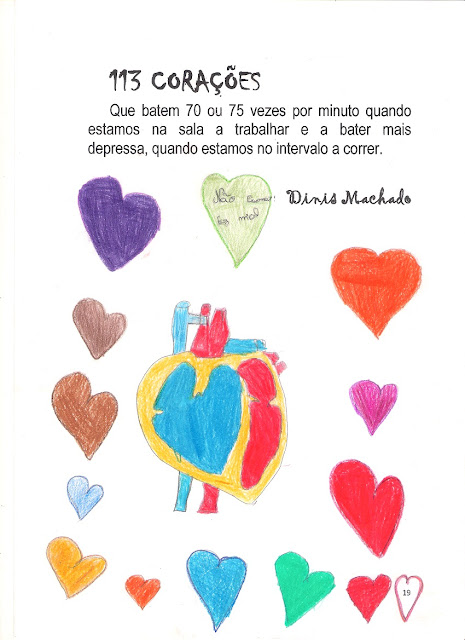 113 CORAÇÕES
Que batem 70 ou 75 vezes por minuto quando
estamos na sala a trabalhar e a bater mais
depressa, quando estamos no intervalo a correr.
Não
faz mal
Dinis Machado
19